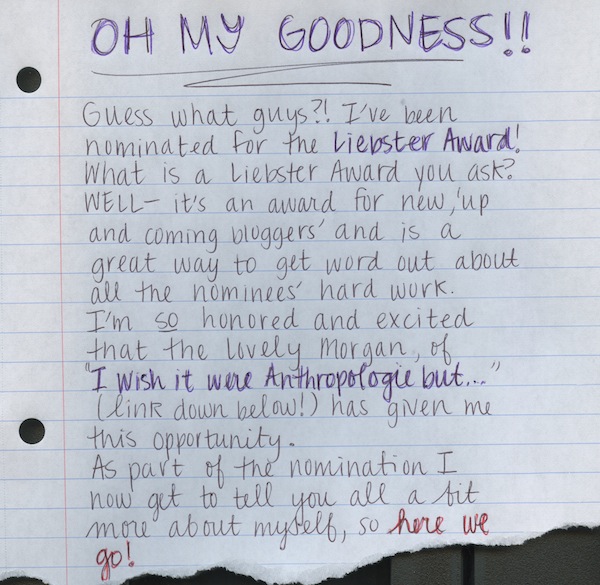 OH MY GOODNESS!!
Guess what guys?! I've been
nominated for the Liebster Award!
What is a Liebster Award you ask?
WELL- it's an award for new, 'up
and coming bloggers' and is a
great way to get word out about
all the nominees' hard work.
I'm so honored and excited
that the lovely Morgan, of
"I wish it were Anthropologie but..."
(link down below!) has given me
this opportunity.
As part of the nomination I
now get to tell you all a bit
more about myself, so here we
go!